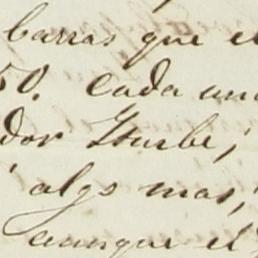 barras que el
50. cada una
dor Iturbe;
algo mas,
aunque el